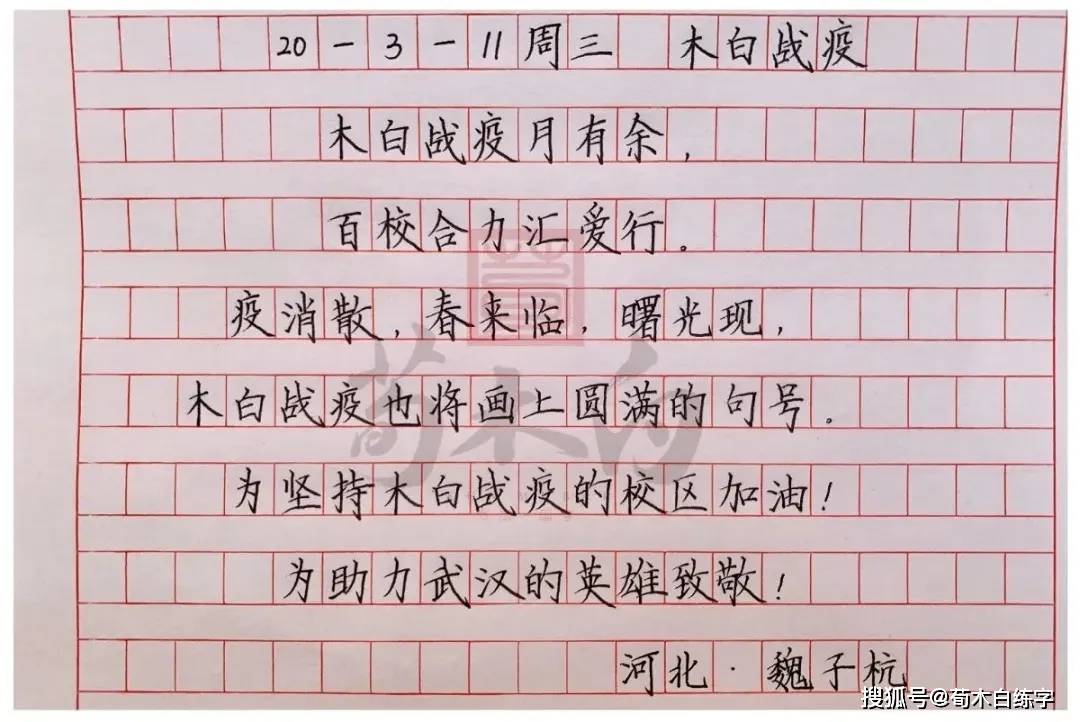 20-3-11周三 木白战疫
木白战疫月有余，
百校合力汇爱行。
疫消散，春来临，曙光现，
木白战疫也将画上圆满的句号。
为坚持木白战疫的校区加油！
为助力武汉的英雄致敬！
河北·魏子杭
荀木白
搜狐号@荀木白练字